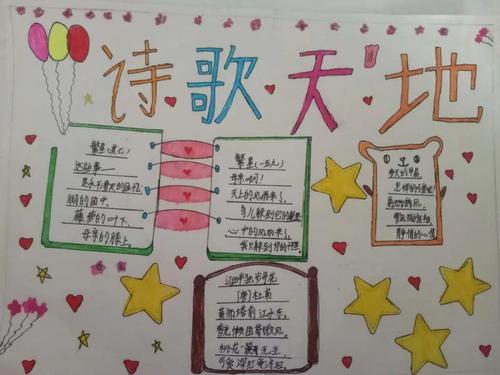 诗歌天地
繁星(其七)
这些事——
是永不漫灭的回忆,
月明的园中,
藤萝的叶下,
母亲的膝上。
繁星(一五九)
母亲啊!
天上的风雨来了,
鸟儿躲到它的巢里;
心中的风雨来了,
我只躲到你的怀里。
江畔独步寻花
[唐]杜甫
黄师塔前江水东,
春光懒困倚微风。
桃花一簇开无主,
可爱深红爱浅红。